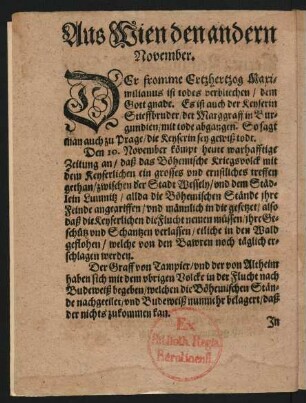 Aus Wien den andern
November.
DEr fromme Ertzhertzog Maxi-
milianus ist todes verblichen / dem
Gott gnade. Es ist auch der Keyserin
Stieffbruder / der Marggraff in Bur-
gundien / mit tode abgangen. So sagt
man auch zu Prage / die Keyserin sey gewiß todt.
Den 10. November kömpt heute warhafftige
Zeitung an / daß das Böhemische Kriegsvolck mit
dem Keyserlichen ein grosses vnd ernstliches treffen
gethan / zwischen der Stad Wesseln / vnd dem Städ-
lein Lumnitz / allda die Böhemischen Stände ihre
Feinde angegriffen / vnd männlich in die gesetzt / also
daß die Keyserlichen die Flucht nemen müssen / ihre Ge-
schütz vnd Schantzen verlassen / etliche in den Wald
geflohen / welche von den Bawren noch täglich er-
schlagen werden.
Der Graff von Tampier / vnd der von Altheim
haben sich mit dem vbrigen Volcke in der Flucht nach
Budeweiß begeben / welchen die Böhemischen Stän-
de nachgeeilet / vnd Budeweiß nunmehr belägert / daß
der nichts zukommen kan.
In
Ex
Biblioth. Regia
Berolinensi